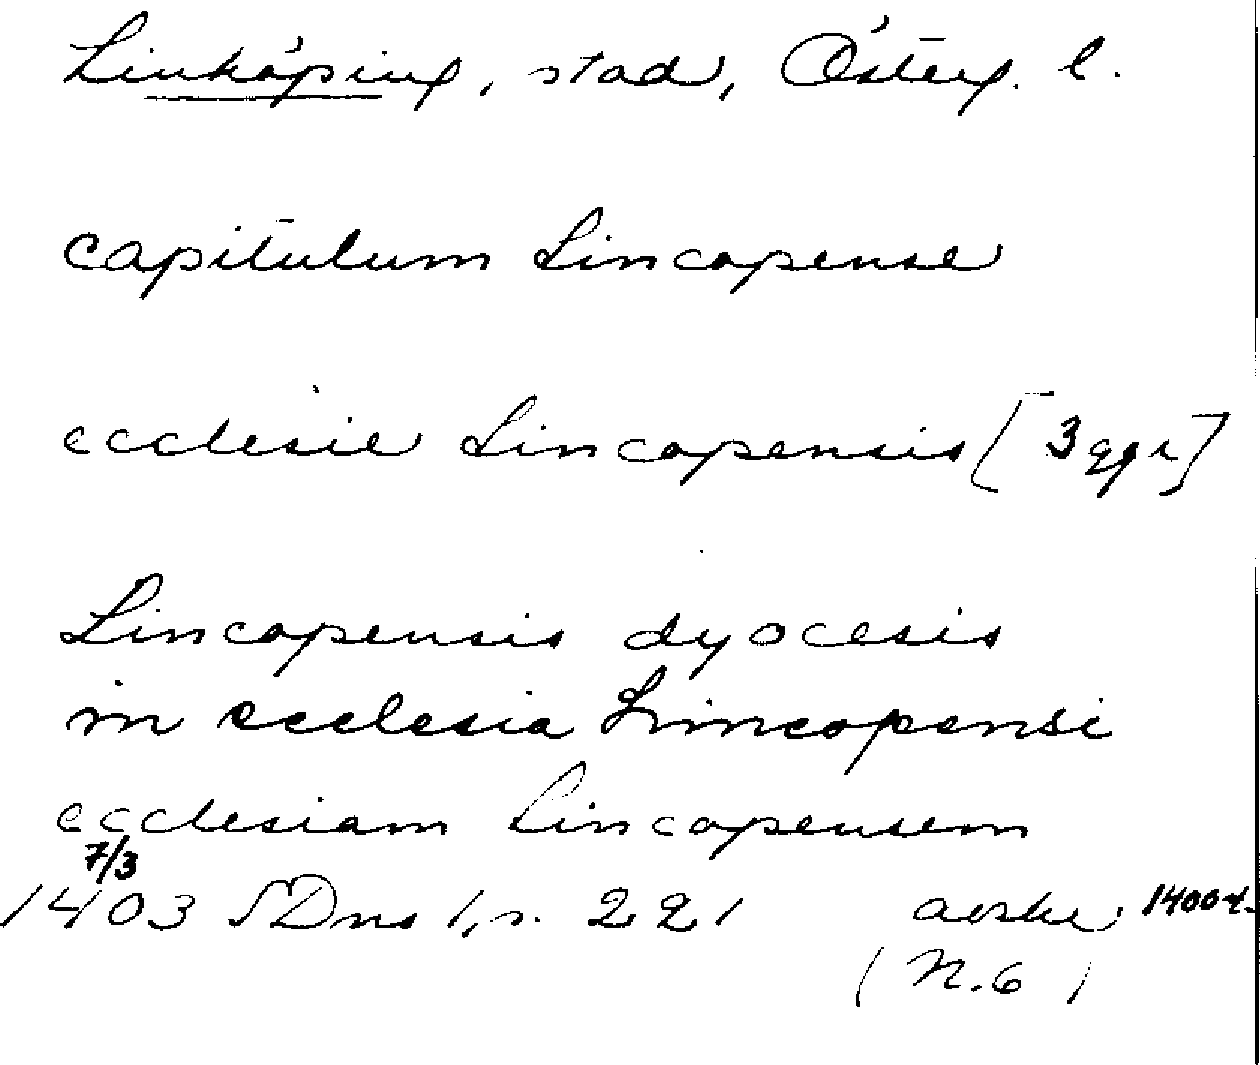 Linköping, stad, Österg. l.
capitulum Lincopense
ecclesie Lincopensis [3 ggr]
Lincopensis dyocesis
in ecclesia Lincopensi
ecclesiam Lincopensem
7/3
1403 SDns 1, s. 221 avskr 1400 t.
(N. 6)